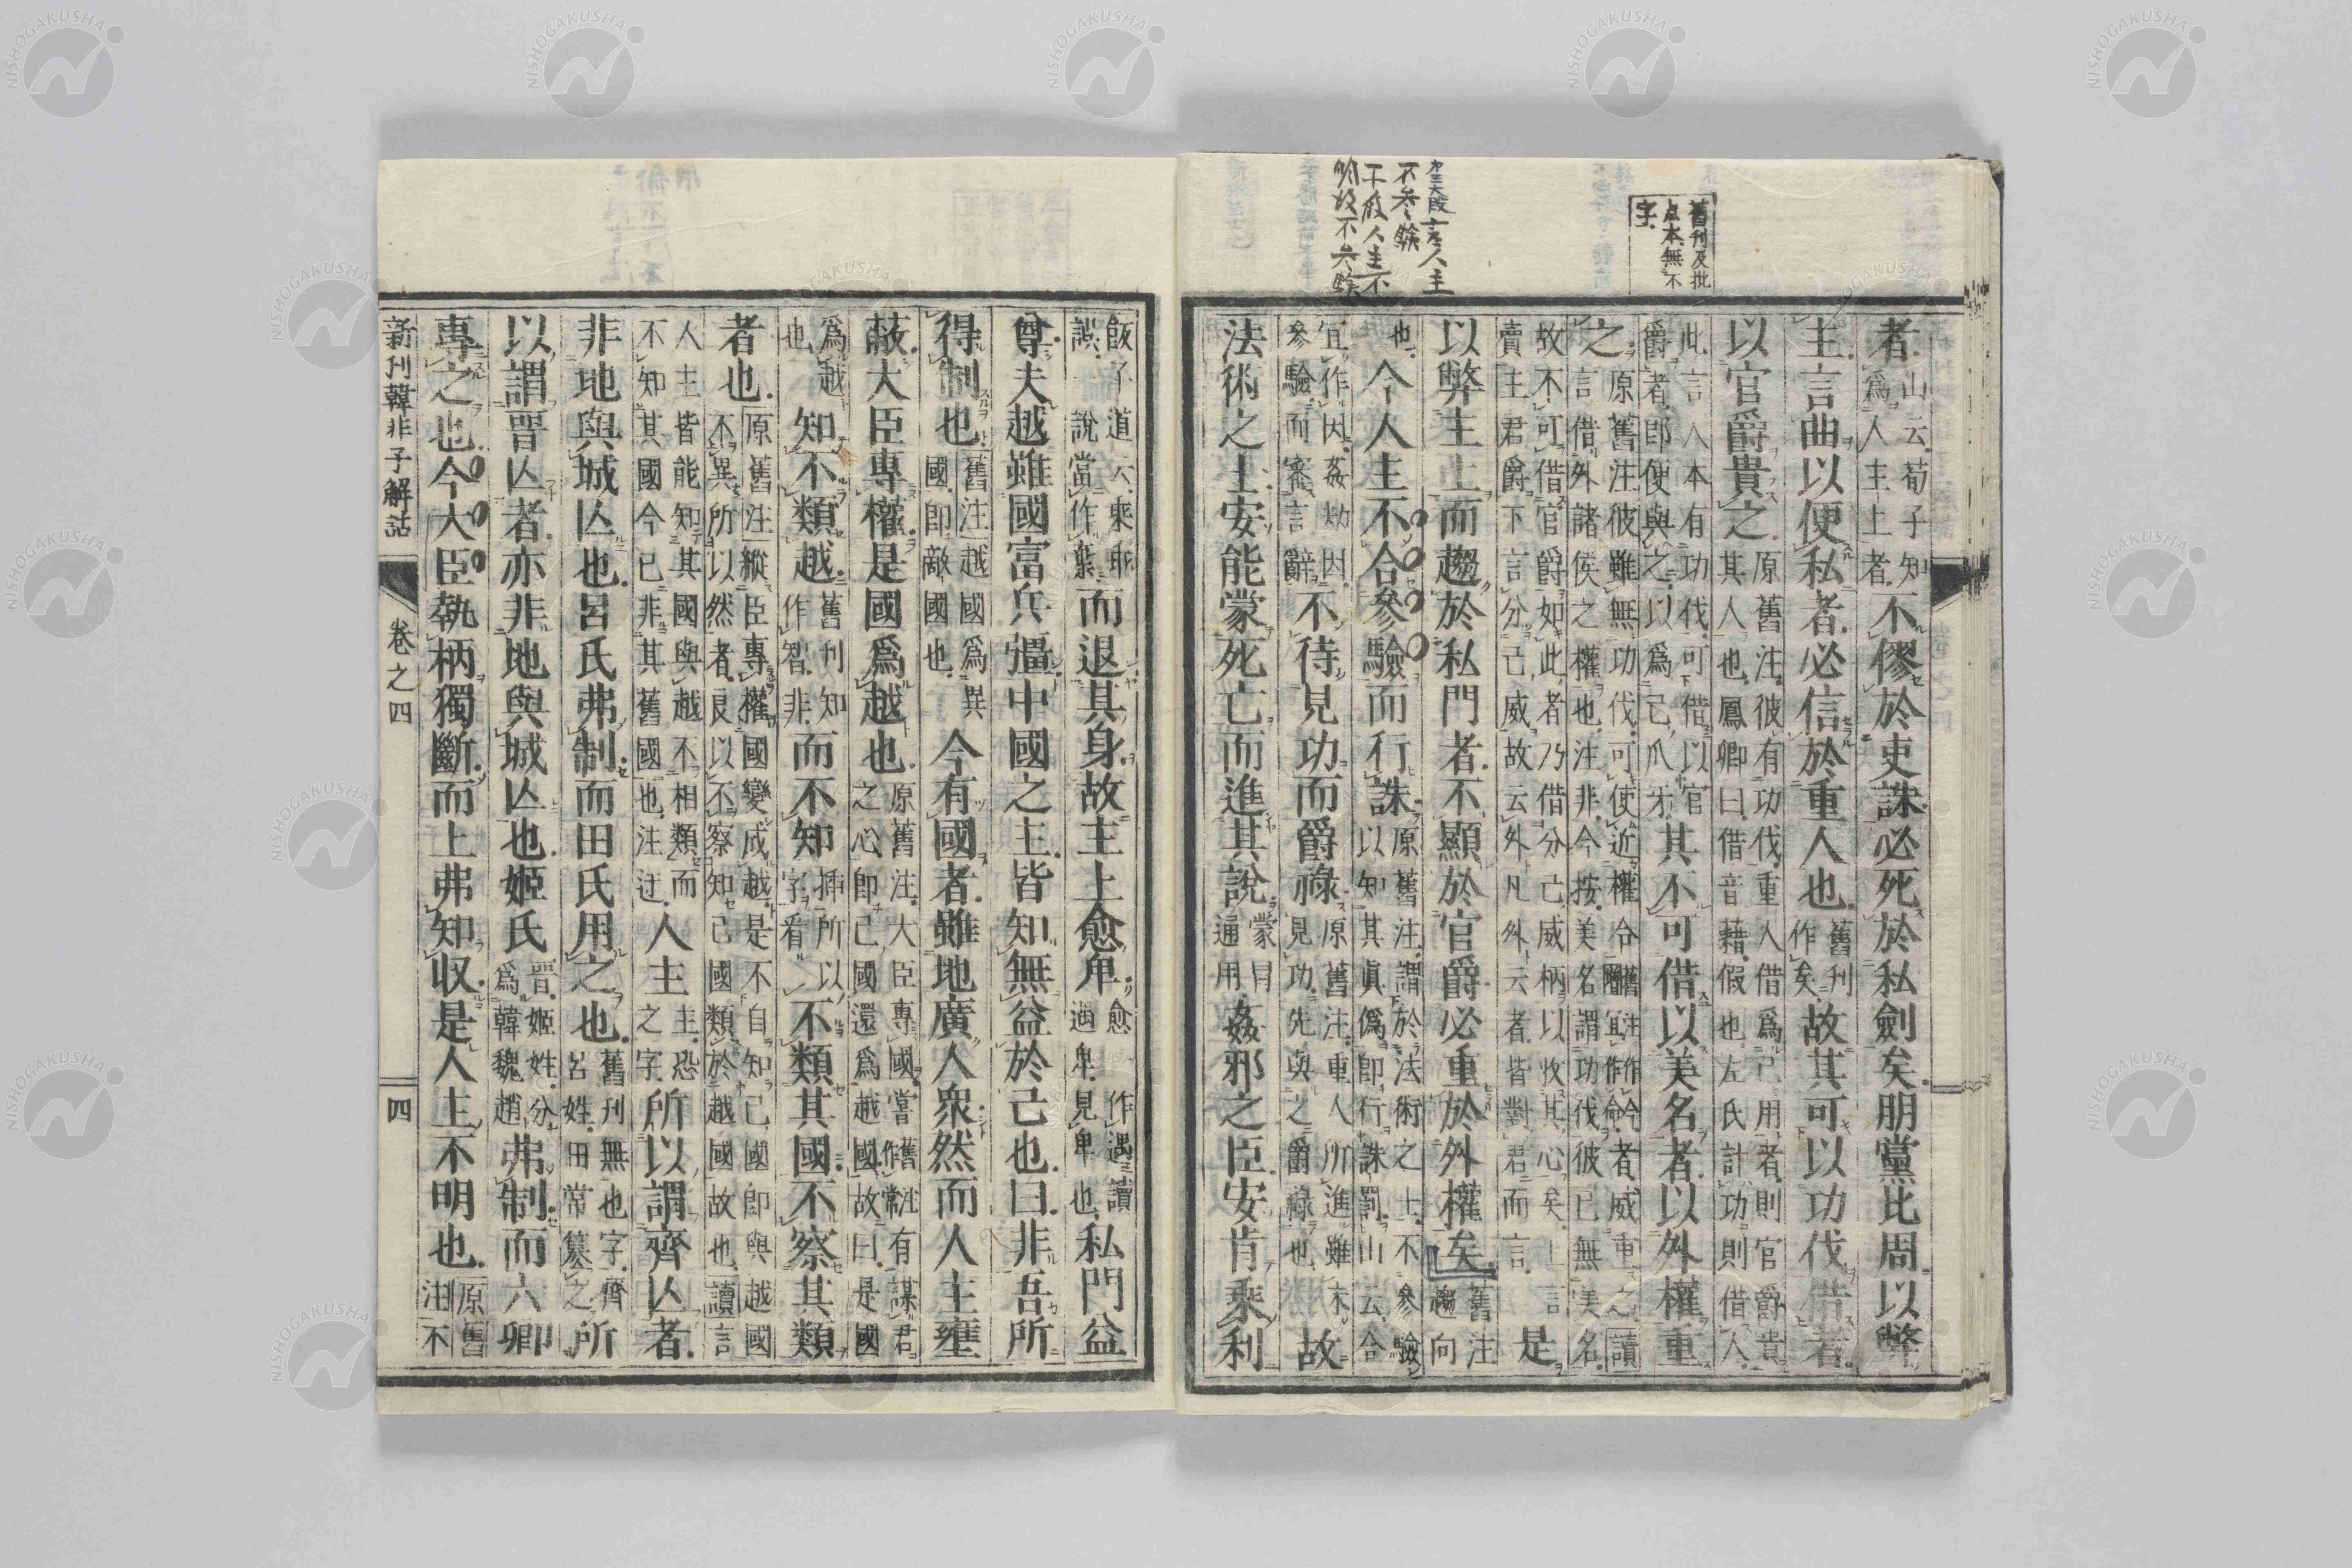 舊刊及批
点本無不
字
才三大段言人主
不參驗
下段人主不
明故不參驗
者山云荀子知爲人主上者不僇於吏誅必死於私劍矣朋黨比周以弊
主言曲以便私者必信於重人也舊刊作矣故其可以功伐借者
以官爵貴之原舊注彼有功伐重人借爲己用者則官爵貴其人也鳳卿曰借音藉假也左氏計功則借人
此言人本有功伐可借以官爵者郎便與之以爲己爪牙其不可借以美名者以外權重
之原舊注彼雖無功伐可使近權合舊注圖宜作作令儉者威重之讀言借外諸侯之權也注非今按美名謂功伐彼已無美名
故不可借官爵如此者乃借分亡威柄以收其心矣上言賣主君爵下言分己威故云外凡外云者皆對君而言是
以弊主上而趨於私門者不顯於官爵必重於外權矣舊注趨向
也今人主不合參驗而行誅原舊注謂於法術之士不參驗以知其眞僞即行誅罰山云合
宜作因姦劫因參驗而審言辭不待見功而爵祿原舊注重人所進雖未見功先與之爵祿也故
法術之士安能蒙死亡而進其說蒙冒通用姦邪之臣安肯乘利
飯子道云乘乖誤說當作棄而退其身故主上愈卑愈作遇讀遇卑見卑也私門益
尊夫越雖國富兵彊中國之主皆知無益於己也曰非吾所
得制也舊注越國爲異國即敵國也今有國者雖地廣人衆然而人主壅
蔽大臣專權是國爲越也原舊注大臣專國嘗舊注作常有謀君之心即己國還爲越國故曰是國
爲越也知不類越舊刊知作智非而不知揷所以字看不類其國不察其類
者也原舊注縱臣專權國變成越是不自知己國即與越國不異所以然者良以不察知己國類於越國故也讀言
人主皆能知其國與越不相類而不知其國今已非其舊國也注迂人主主恐之字所以謂齊亾者
非地與城亾也呂氏弗制而田氏用之也舊刊無也字齊呂姓田常簒之所
以謂晋亾者亦非地與城亾也姬氏晋姬姓分爲韓魏趙弗制而六卿
專之也今大臣執柄獨斷而上弗知収是人主不明也原舊注不
新刊韓非子解詁
卷之四
四